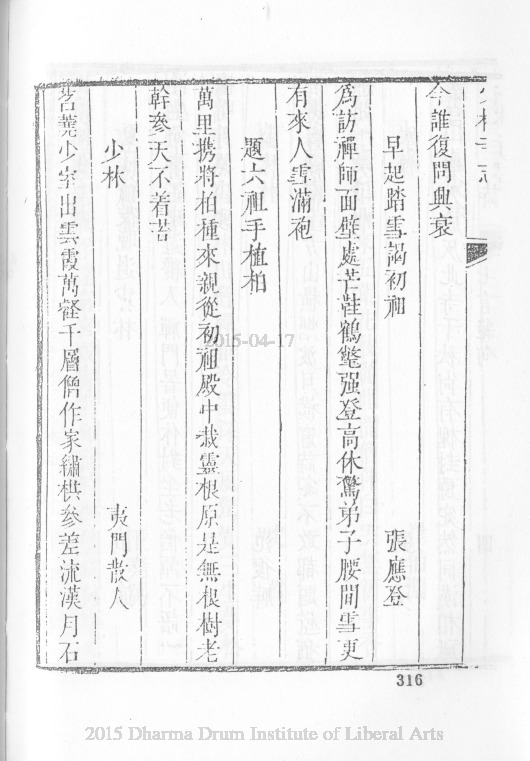 少林寺志
今誰復問興衰
早起踏雪謁初祖 張應登
爲訪禪師面壁處芒鞋鶴氅强登高休驚弟子腰間雪更
有來人雪滿袍
題六祖手植柏
萬里携將柏種來親從初祖殿中栽靈根原是無根樹老
幹參天不着苔
少林 夷門散人
岧蕘少室出雲霞萬壑千層僧作家繡栱參差流漢月石
316
2015-04-17
2015 Dharma Drum Institute of Liberal Arts